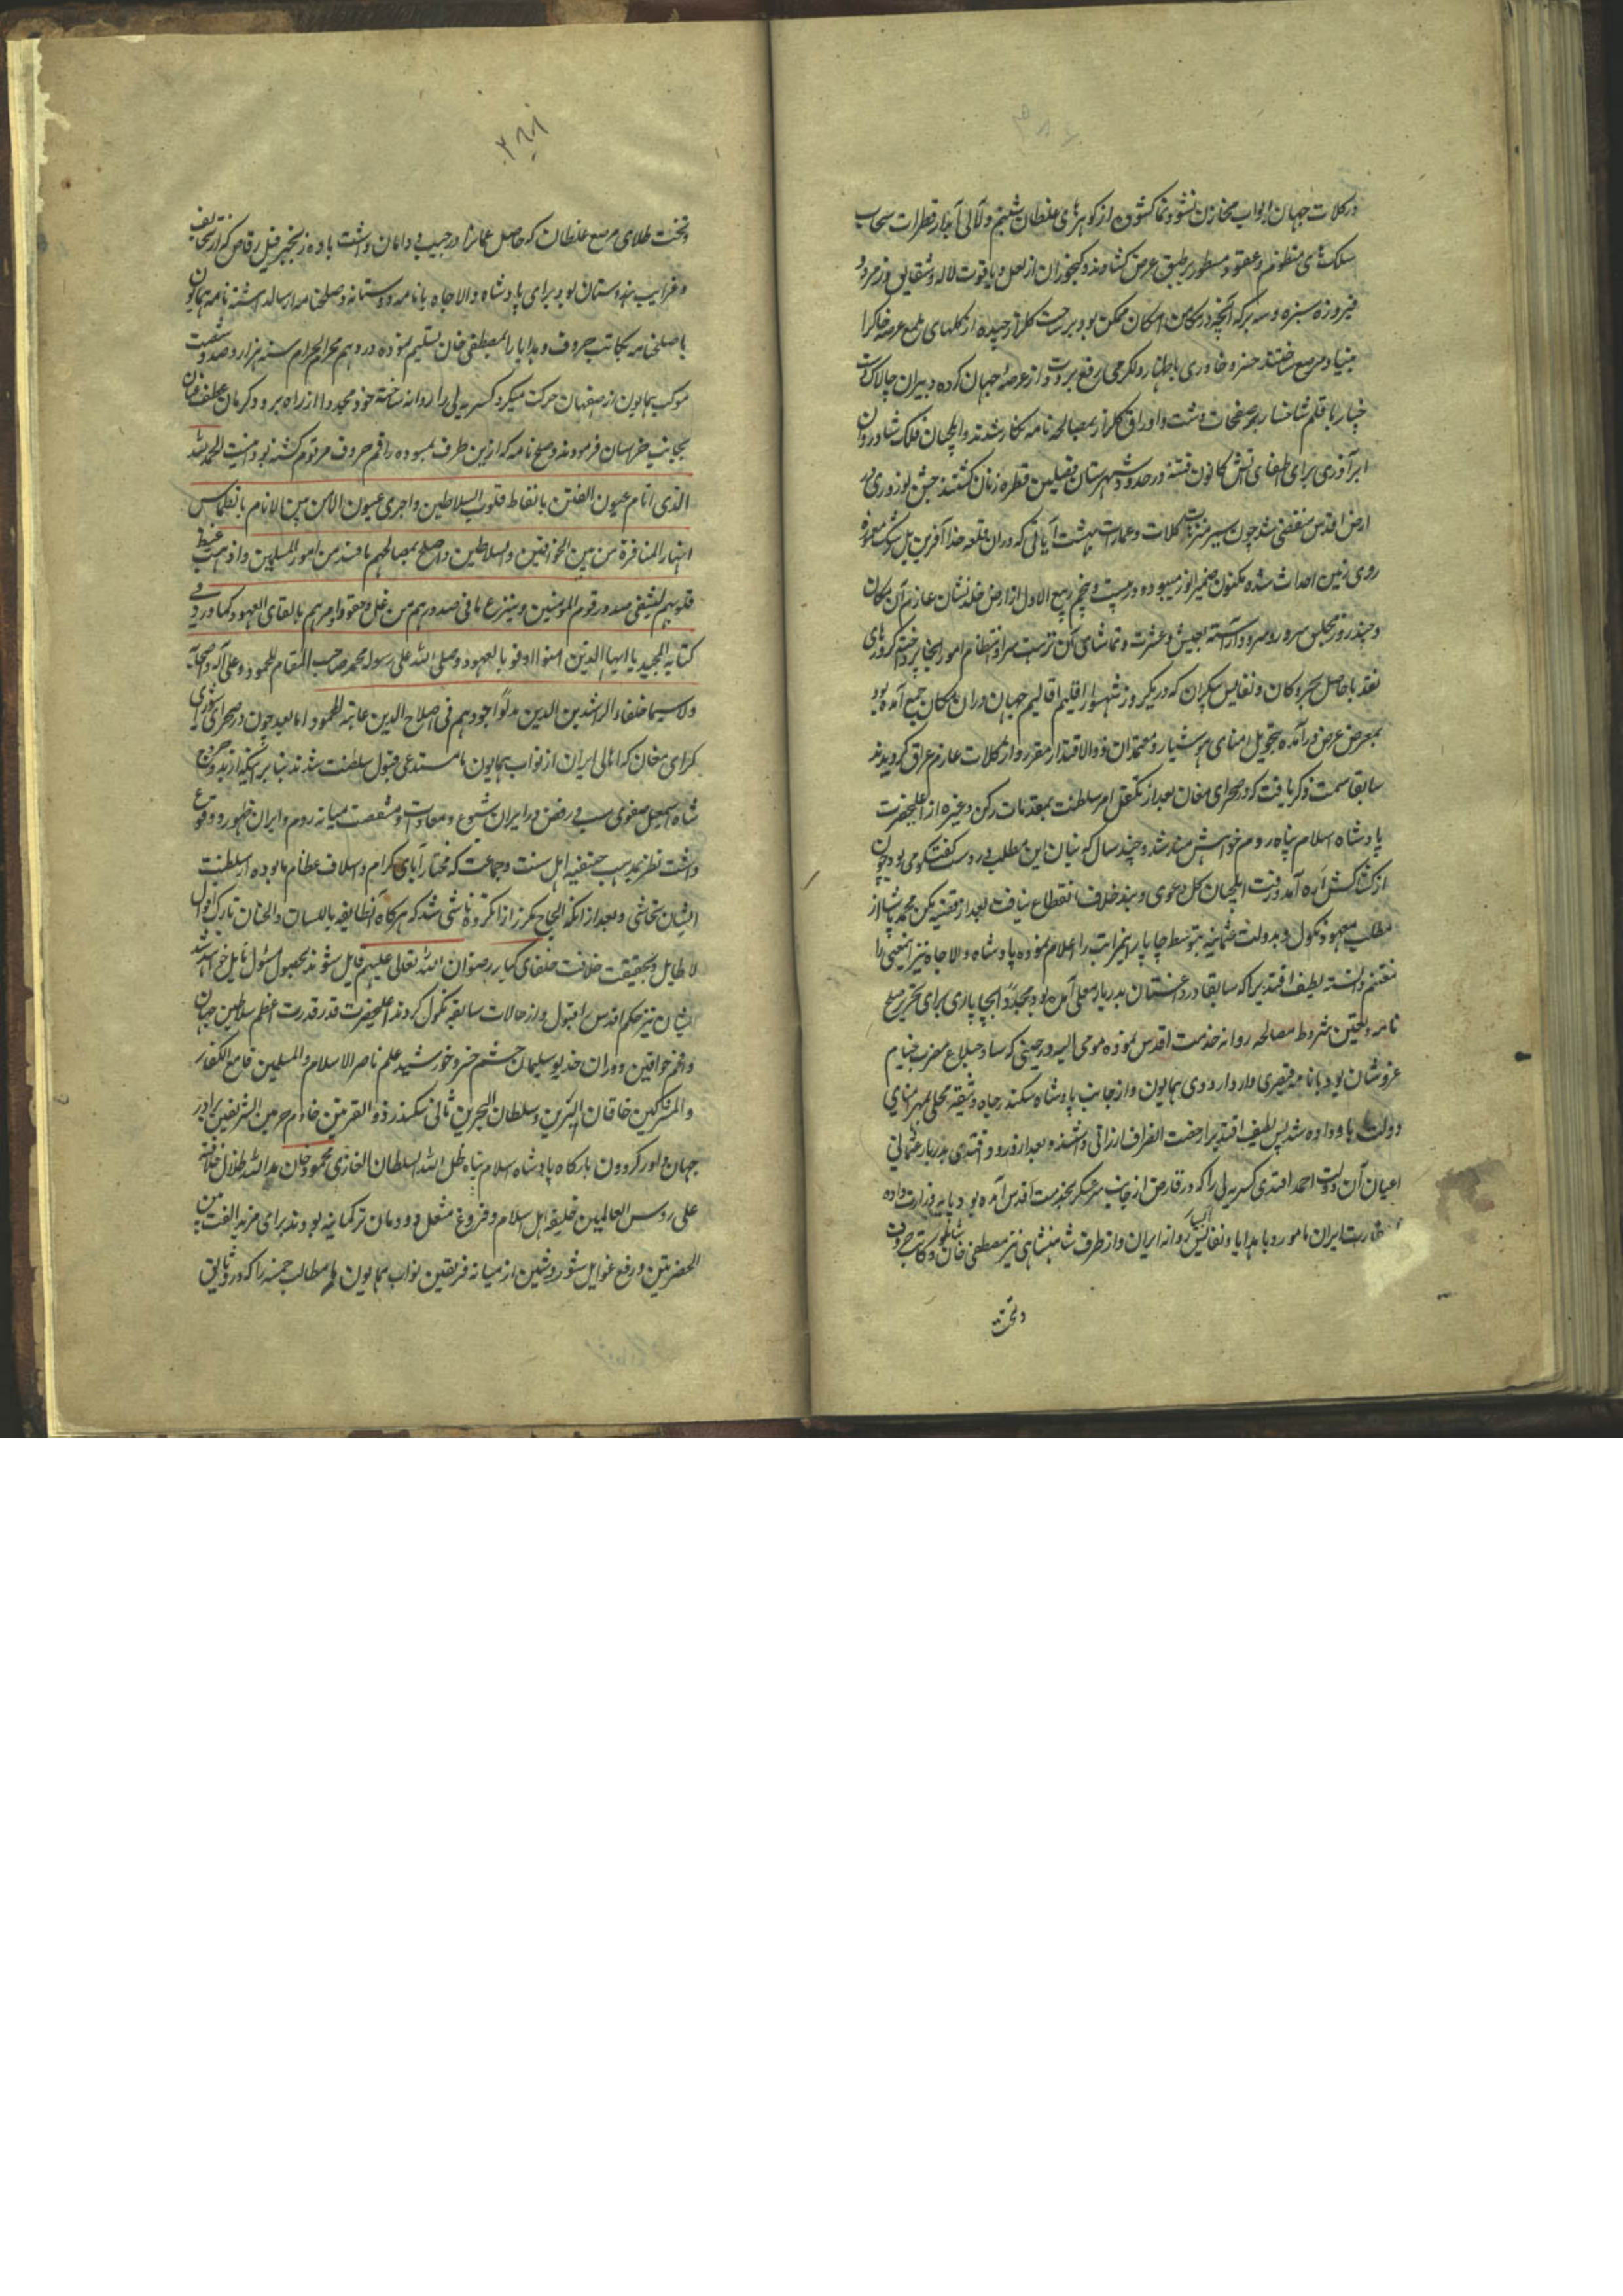 در کلات جهان ابواب مخازن نشو و نما کشوده از کوهرهای غلطان شبنم و لآلی آبدار قطرات سحاب
سلکهای منظوم و عقود مسطور بر طبق عرض کشاده و کنجوران از لعل و یاقوت لاله و شقایق و زمرد و
فیروزه سبزه و سه برکه آنچه در مکامن امکان ممکن بود بر ساحت کلزار چیده از کلهای ملمع عرصه خاک را
مینا و مرصع ساختند خسرو خاوری باظهار دلکرمی رفع برودت از عرصه جهان کرده دبیران چالاک دست
خیار باقلم شاخسار بر صفحات دشت و اوراق کلزار مصالحه نامه نکار شدند و ایلچیان فلک شادروان
ابر آذری برای اطفای آتش کانون فتنه در حدود شهرستان قطره زنان کشتند جشن نوروزی در
ارض اقدس منقضی شد چون سیر منتزهات کلات و عمارت بهشت آیاتی که در آن قلعه خدا آفرین
روی زمین احداث شده مکنون ضمیر انور میبود در بیست و پنجم ربیع الاول از ارض خلدنشان عازم آن مکان
و چند روز مجلس سرور و سرود آراسته بعیش و عشرت و تماشای آن نزهت سرا و انتظام امور آنجا پرداخته کرورهای
نقد با حاصل بحر و کان و نفایس بیکران که در یکروز شهسوار اقلیم اقالیم جهان در آن مکان جمع آمده بود
بمعرض عرض درآمده تحویل امنای هوشیار و معتمدان ذوالاقتدار مقرر و از کلات عازم عراق کردیدند
سابقا سمت ذکر یافت که در صحرای مغان بعد از تکفل امر سلطنت بمقدمات رکن و غیره از اعلیحضرت
پادشاه اسلام پناه روم خواهش مند شد و چند سال که بنیان این مطلب در دست کفتکو می بود چون
از کشاکش اره آمد و رفت ایلچیان کل دعوی و بند خلاف انقطاع نیافت بعد از قضیه یکن محمد پاشا از
مطلب معهود نکول و بدولت عثمانیه بتوسط چاپار این مراتب را اعلام نموده پادشاه والا جاه نیز اینمعنی را
مغتنم دانسته لطیف افندی را که سابقا در داغستان بدربار معلی آمده بود مجددا بچاپاری برای تحریر صلح
نامه و تعیین شروط مصالحه روانه خدمت اقدس نموده مومی الیه در حینی که ساوجبلاغ مضرب خیام
عز و شان بود با نامه قیصری وارد اردوی همایون و از جانب پادشاه سکندر جاه وثیقه محلی بمهر امنای
دولت باو داده شد پس لطیف افندی را رخصت انصراف ارزانی داشتند و بعد از ورود افندی بدربار عثمانی
اعیان آن دولت احمد افندی کسریه لی را که در قارص از جانب سرعسکر بخدمت اقدس آمده بود پایه وزارت داده
بسفارت ایران مامور و با هدایا و نفایس روانه ایران و از طرف شاهنشاهی نیز مصطفی خان شاملو و کاتب حروف
و تخت
۲۸۸
و تخت طلای مرصع غلطان که حاصل عمانرا در جیب و دامان داشت با دو زنجیر فیل رقاص که از تحایف
و غرایب هندوستان بود برای پادشاه والا جاه با نامه دوستانه و صلحنامه ارسالداشته نامه همایون
با صلحنامه بکاتب حروف و هدایا را بمصطفی خان تسلیم نموده در دهم محرم الحرام سنه هزار و صد و شصت
موکب همایون از اصفهان حرکت میکرد کسریه لی را روانه ساخته خود مجددا از راه یزد و کرمان عطف عنان
بجانب خراسان فرمودند و صلح نامه که ازین طرف بمسوده راقم حروف مرقوم کشته بود اینست الحمد لله
الذی انام عیون الفتن بانقاظ قلوب السلاطین و اجری عیون الامن بین الانام بانطماس
انهار المنافرة من بین الخواقین و السلاطین و اصلح بمصالحهم ما فسد من امور المسلمین و اذهب غیظ
قلوبهم لیشفی صدور قوم المومنین و ینزع ما فی صدورهم من غل و حقد و امرهم بالقای العهود کما ورد فی
کتابه المجید یا ایها الذین امنوا اوفوا بالعهود و صلی الله علی رسوله محمد صاحب المقام المحمود و علی آله و اصحابه
و لا سیما خلفاء الراشدین الذین بذلوا جهودهم فی اصلاح الدین غایة المجهود اما بعد چون در صحرای شورای
کبرای مغان که اهالی ایران از نواب همایون ما مستدعی قبول سلطنت شدند بنا بر اینکه از بدو خروج
شاه اسمعیل صفوی سب و رفض در ایران شیوع و معادات و منقصت میانه روم و ایران ظهور و وقوع
داشت نظر بمذهب حنفیه اهل سنت و جماعت که مختار آبای کرام و اسلاف عظام ما بوده از سلطنت
ایشان تحاشی و بعد از آنکه الحاح مکرر از آن کروه ناشی شد که هرکاه آنطایفه باللسان و الجنان تارک اقوال
لاطایل و بحقیقت خلافت خلفای کبار رضوان الله تعالی علیهم قایل شوند بحصول مسئول نایل خواهند شد
ایشان نیز حکم اقدس را قبول و از حالات سابقه نکول کردند اعلیحضرت قدر قدرت اعظم سلاطین جهان
و افخم خواقین دوران خدیو سلیمان حشم خسرو خورشید علم ناصر الاسلام و المسلمین قامع الکفار
و المشرکین خاقان البرین و سلطان البحرین ثانی سکندر ذو القرنین خادم حرمین الشریفین برادر
جهان داور کردون بارکاه پادشاه اسلام پناه ظل الله السلطان الغازی محمود خان مد الله ظلال خلافته
علی روس العالمین خلیفه اهل اسلام و فروغ مشعل دودمان ترکمانیه بودند برای مزید الفت بین
الحضرتین و رفع غوایل شور و شین از میانه فریقین نواب همایون ما مطالب خمسه را که در وثایق